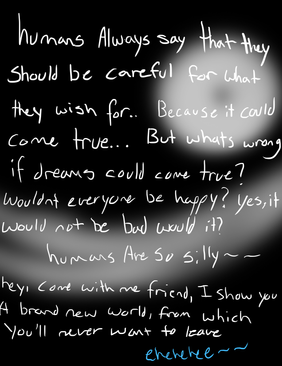 humans Always say that they
should be careful for what
they wish for.. Because it could
come true... But whats wrong
if dreams could come true?
Wouldnt everyone be happy? Yes, it
would not be bad would it?
humans Are so silly~~
hey, come with me friend, I show you
A brand new world, from which
You'll never want to leave
ehehehee~~